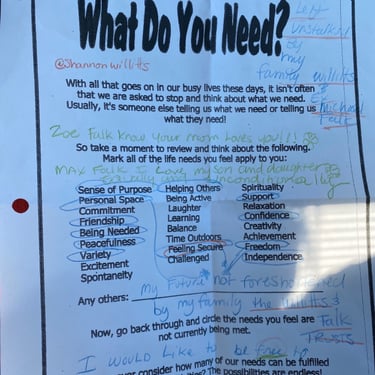 What Do You Need?
Left
unstalked
by
my
family willitts
@shannonwillitts
&
Ex
Michael
Falk
With all that goes on in our busy lives these days, it isn't often
that we are asked to stop and think about what we need.
Usually, it's someone else telling us what we need or telling us
what they need!
Zoe Falk know your mom loves you!!!
So take a moment to review and think about the following.
Mark all of the life needs you feel apply to you:
MAX Falk I love my son and daughter
equally and unconditionally
Sense of Purpose Helping Others Spirituality
Personal Space Being Active Support
Commitment Laughter Relaxation
Friendship Learning Confidence
Being Needed Balance Creativity
Peacefulness Time Outdoors Achievement
Variety Feeling Secure Freedom
Excitement Challenged Independence
Spontaneity
my Future not foreshortened
Any others:
by my family the Willitts &
Now, go back through and circle the needs you feel are Falk
not currently being met. TRUSTS
I would like to be free to
consider how many of our needs can be fulfilled
The possibilities are endless!